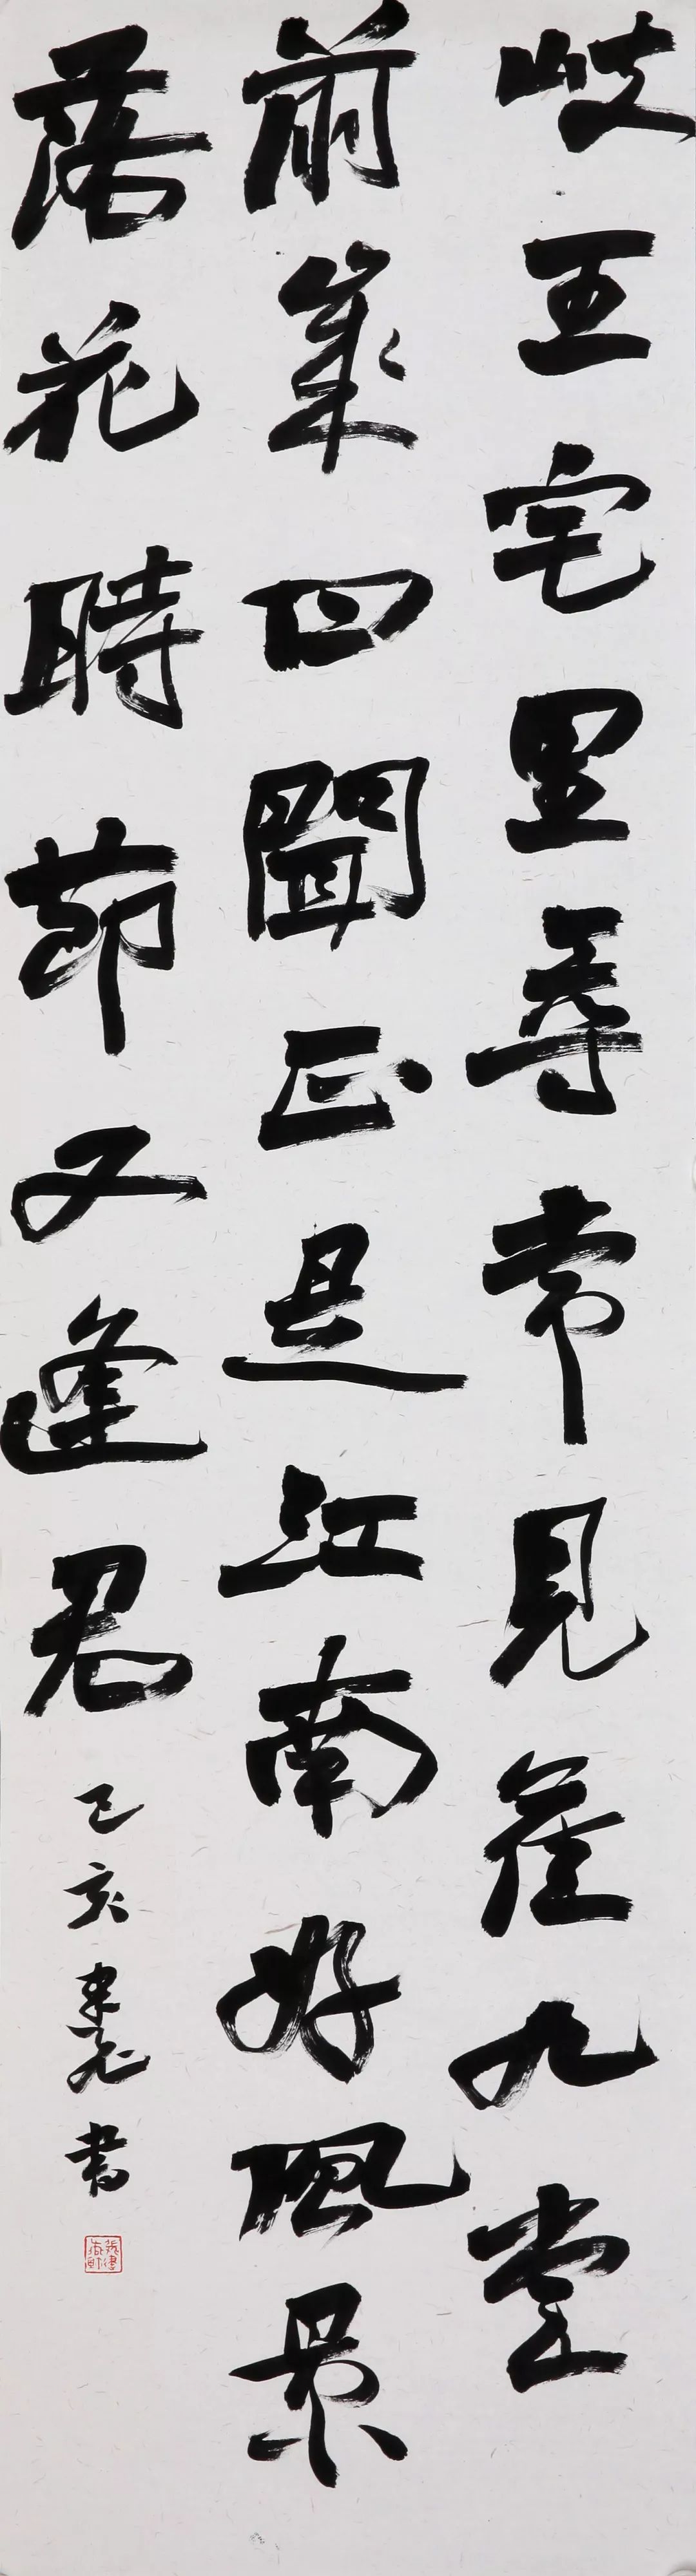 岐王宅里尋常見崔九堂
前幾回聞正是江南好風景
落花時節又逢君
己亥 書